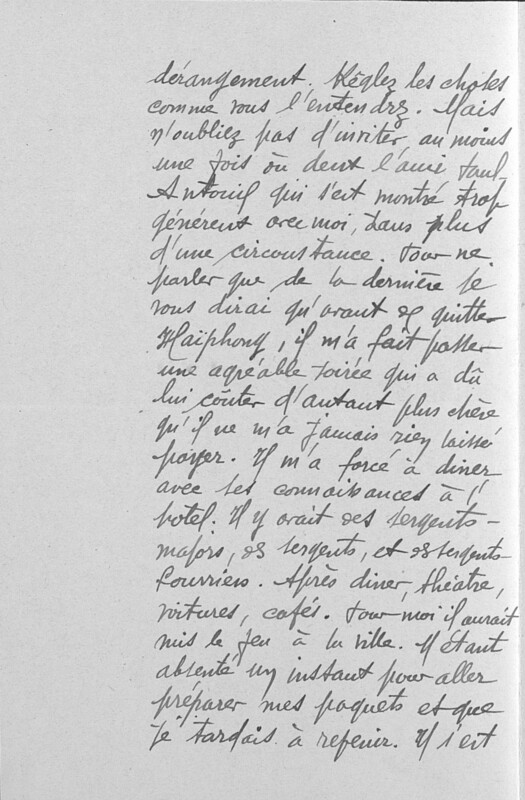 dérangement. Réglez les choses
comme vous l'entendrez. Mais
n'oubliez pas d'inviter, au moins
une fois ou deux l'ami Paul-
Antoine qui s'est montré trop
généreux avec moi, dans plus
d'une circonstance. Pour ne
parler que de la dernière je
vous dirai qu'avant de quitter
Haïphong, il m'a fait passer
une agréable soirée qui a dû
lui coûter d'autant plus chère
qu'il ne m'a jamais rien laissé
payer. Il m'a forcé à diner
avec ses connaissances à l'
hotel. Il y avait des sergents-
majors, des sergents, et des sergents-
fourriers. Après diner, théatre,
voitures, cafés. Pour moi il aurait
mis le feu à la ville. M'étant
absenté un instant pour aller
préparer mes paquets et que
je tardais à revenir. Il s'est